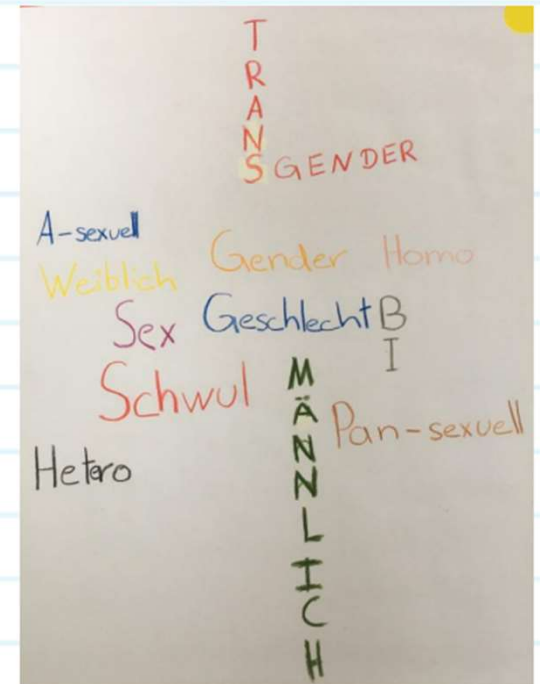 TRANSGENDER
A-sexuell
Gender
Homo
Weiblich
Sex
Geschlecht
BI
Schwul
MÄNNLICH
Pan-sexuell
Hetero